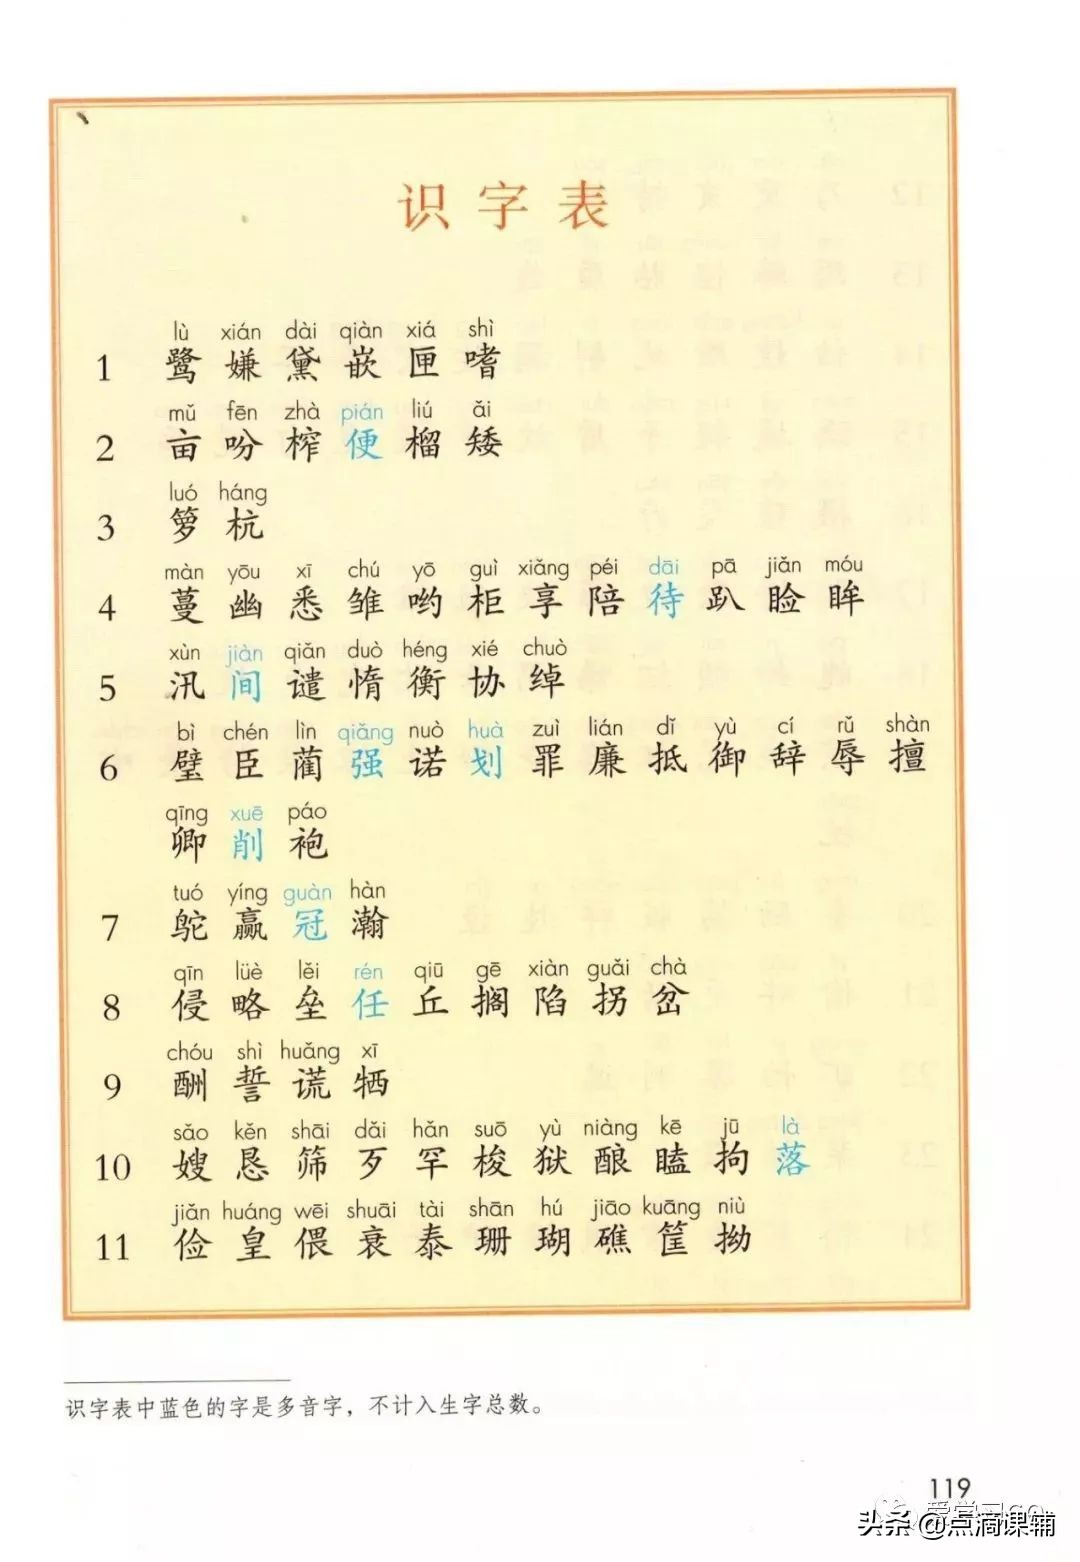 识字表
lù xián dài qiàn xiá shì
1 鹭 嫌 黛 嵌 匣 嗜
mǔ fēn zhà pián liú ǎi
2 亩 吩 榨 便 榴 矮
luó háng
3 箩 杭
màn yōu xī chú yō guì xiǎng péi dāi pā jiǎn móu
4 蔓 幽 悉 雏 哟 柜 享 陪 待 趴 睑 眸
xùn jiàn qiǎn duò héng xié chuò
5 汛 间 谴 惰 衡 协 绰
bì chén lìn qiǎng nuò huà zuì lián dǐ yù cí rǔ shàn
6 璧 臣 蔺 强 诺 划 罪 廉 抵 御 辞 辱 擅
qīng xuē páo
卿 削 袍
tuó yíng guàn hàn
7 鸵 赢 冠 瀚
qīn lüè lěi rén qiū gē xiàn guǎi chà
8 侵 略 垒 任 丘 搁 陷 拐 岔
chóu shì huǎng xī
9 酬 誓 谎 牺
sǎo kěn shāi dǎi hǎn suō yù niàng kē jū là
10 嫂 恳 筛 歹 罕 梭 狱 酿 瞌 拘 落
jiǎn huáng wēi shuāi tài shān hú jiāo kuāng niù
11 俭 皇 偎 衰 泰 珊 瑚 礁 筐 拗
识字表中蓝色的字是多音字，不计入生字总数。
119
头条 @点滴课辅